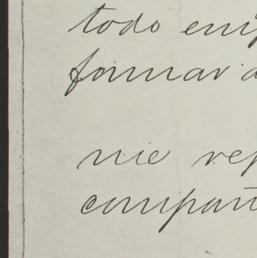 todo emp
formar a
me rep
compart